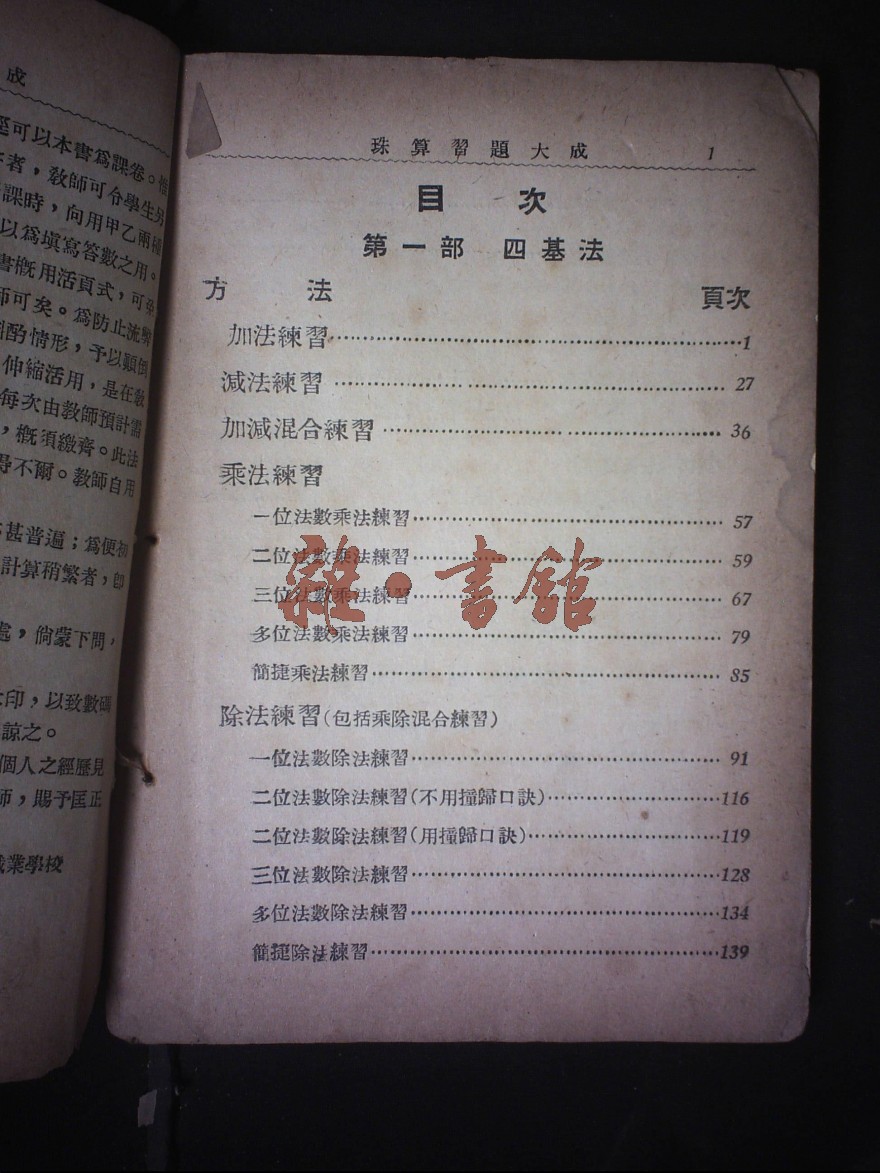 成
可以本書爲課卷。
者，教師可令學生另
課時，向用甲乙兩種
以爲填寫答數之用。
書概用活頁式，可
師可矣。爲防止流弊
酌情形，予以顚倒
伸縮活用，是在教
每次由教師預計需
，概須繳齊。此法
得不爾。教師自用
甚普遍；爲便初
計算稍繁者，卽
處，倘蒙下問，
印，以致數碼
諒之。
個人之經歷見
師，賜予匡正
業學校
珠算習題大成 1
目次
第一部 四基法
方法 頁次
加法練習 1
減法練習 27
加減混合練習 36
乘法練習
一位法數乘法練習 57
二位法數乘法練習 59
三位法數乘法練習 67
多位法數乘法練習 79
簡捷乘法練習 85
除法練習(包括乘除混合練習)
一位法數除法練習 91
二位法數除法練習(不用撞歸口訣) 116
二位法數除法練習(用撞歸口訣) 119
三位法數除法練習 128
多位法數除法練習 134
簡捷除法練習 139
雜·書館